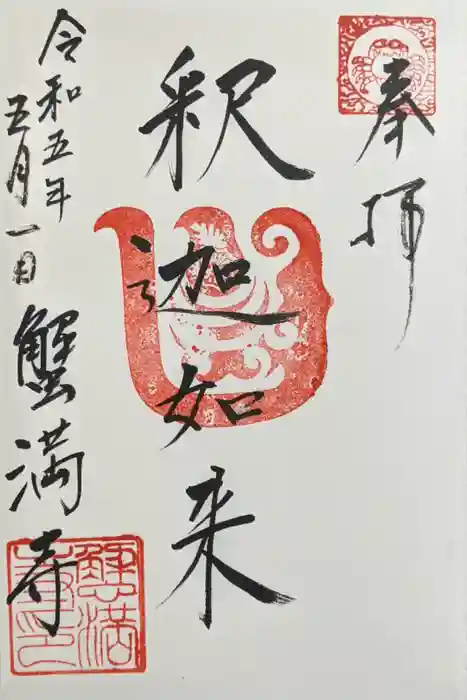 奉拝
釈迦如来
令和五年
五月一日
蟹満寺
蟹満
寺印